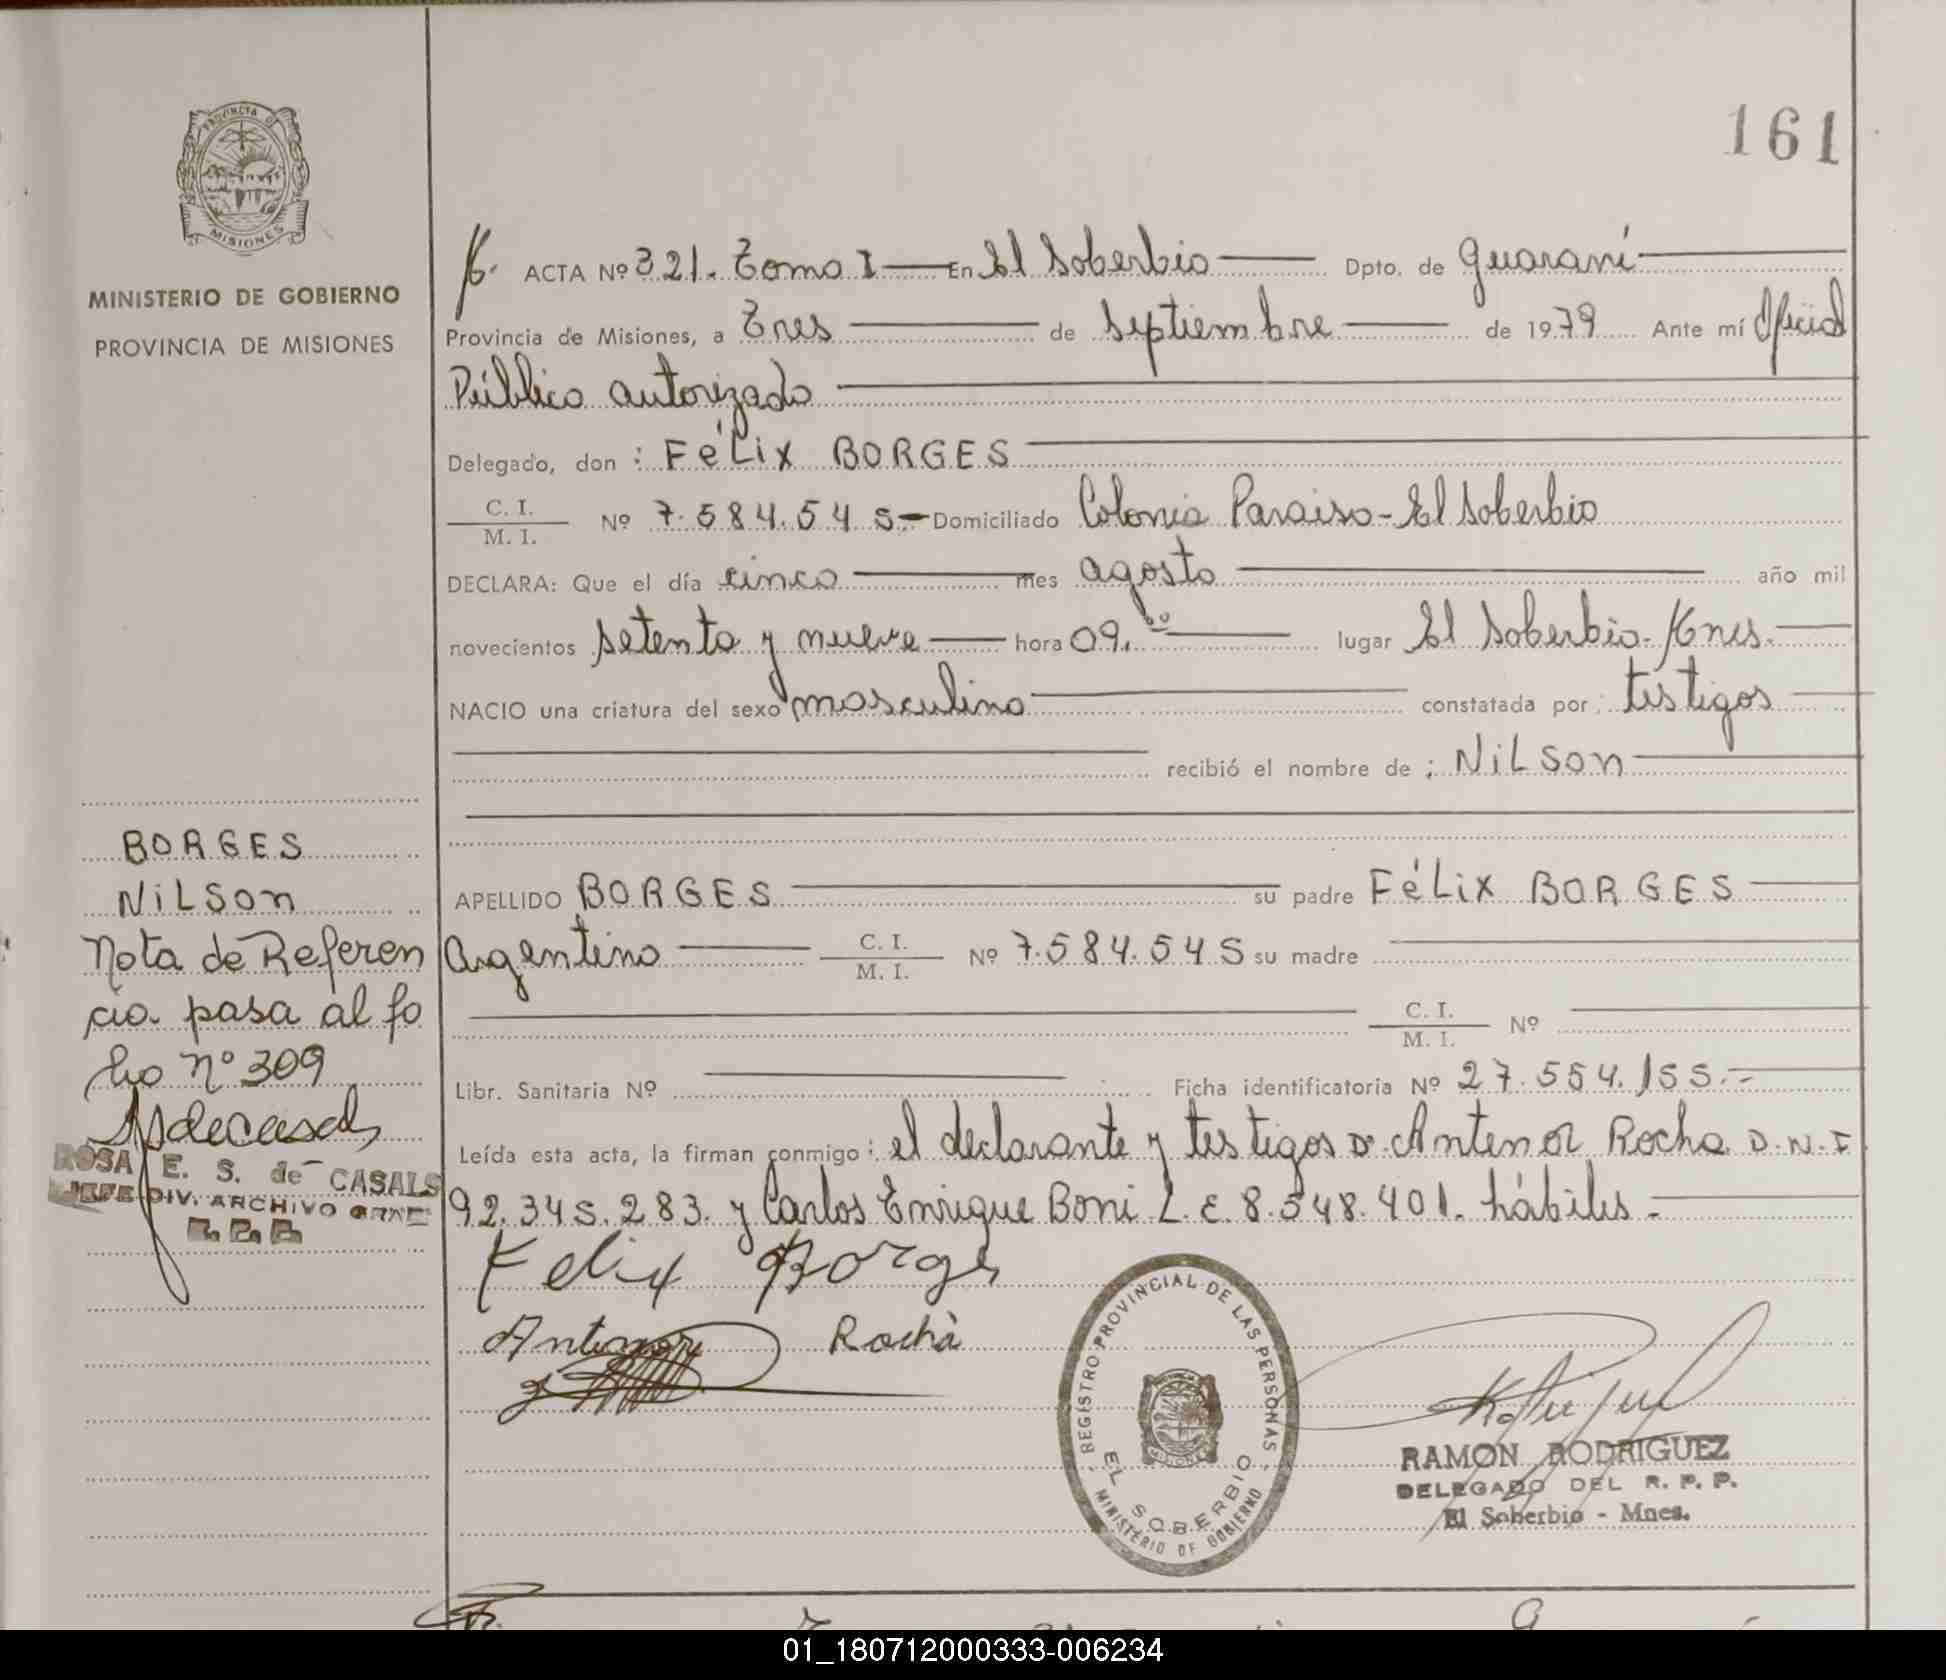 161
PROVINCIA DE
MISIONES
MINISTERIO DE GOBIERNO
PROVINCIA DE MISIONES
ACTA Nº 321. Tomo I — En El Soberbio — Dpto. de Guaraní —
Provincia de Misiones, a Tres — de Septiembre — de 1979 Ante mí Oficial
Público autorizado —
Delegado, don : FéLix BORGES —
C. I. / M. I. Nº 7.584.545 — Domiciliado Colonia Paraiso - El Soberbio
DECLARA: Que el día cinco — mes agosto — año mil
novecientos setenta y nueve — hora 09.⁰⁰ — lugar El Soberbio - Mnes. —
NACIO una criatura del sexo masculino — constatada por : testigos —
— recibió el nombre de : NiLSon —
APELLIDO BORGES — su padre FéLix BORGES —
Argentino — C. I. / M. I. Nº 7.584.545 su madre —
— C. I. / M. I. Nº —
Libr. Sanitaria Nº — Ficha identificatoria Nº 27.554.155.-
Leída esta acta, la firman conmigo : el declarante y testigos D. Antenor Rocha D.N.I
92.345.283. y Carlos Enrique Boni L.E. 8.548.401. hábiles. —
Felix Borges
Antenor Rocha
BORGES
NiLSon
Nota de Referen
cia. pasa al fo
lio Nº 309
ROSA E. S. de CASALS
JEFE DIV. ARCHIVO GRAL
R. P. P.
REGISTRO PROVINCIAL DE LAS PERSONAS
EL SOBERBIO
MINISTERIO DE GOBIERNO
RAMON RODRIGUEZ
DELEGADO DEL R. P. P.
El Soberbio - Mnes.
01_180712000333-006234